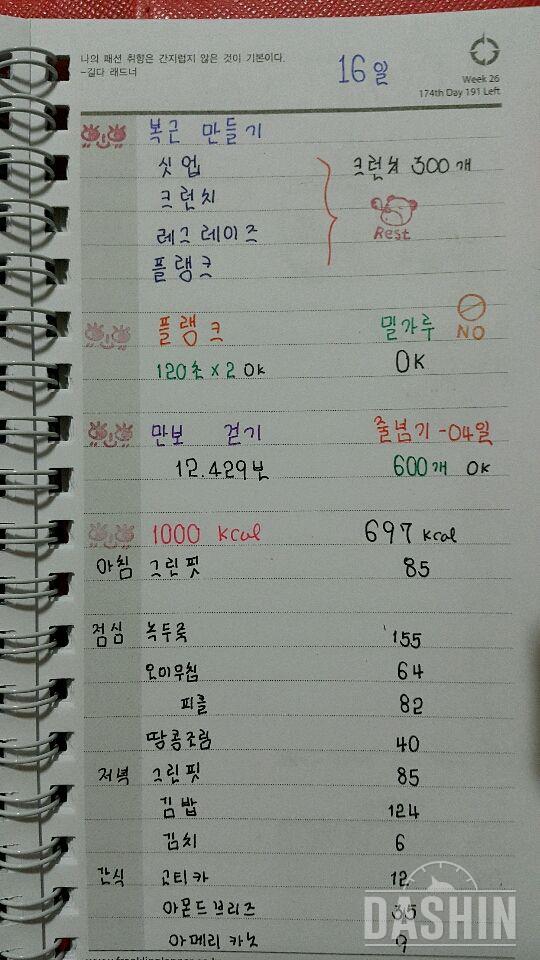 나의 패션 취향은 간지럽지 않은 것이 기본이다.
-길다 래드너
16일
Week 26
174th Day 191 Left
복근 만들기
싯업 크런치 300개
크런치
레그레이즈 Rest
플랭크
플랭크 밀가루 NO
120초 x 2 OK OK
만보 걷기 줄넘기 -04일
12.429보 600개 OK
1000 kcal 697 kcal
아침 그린핏 85
점심 녹두죽 155
오이무침 64
피클 82
땅콩조림 40
저녁 그린핏 85
김밥 124
김치 6
간식 곤티카 12
아몬드브리즈 35
아메리카노 9
DASHIN